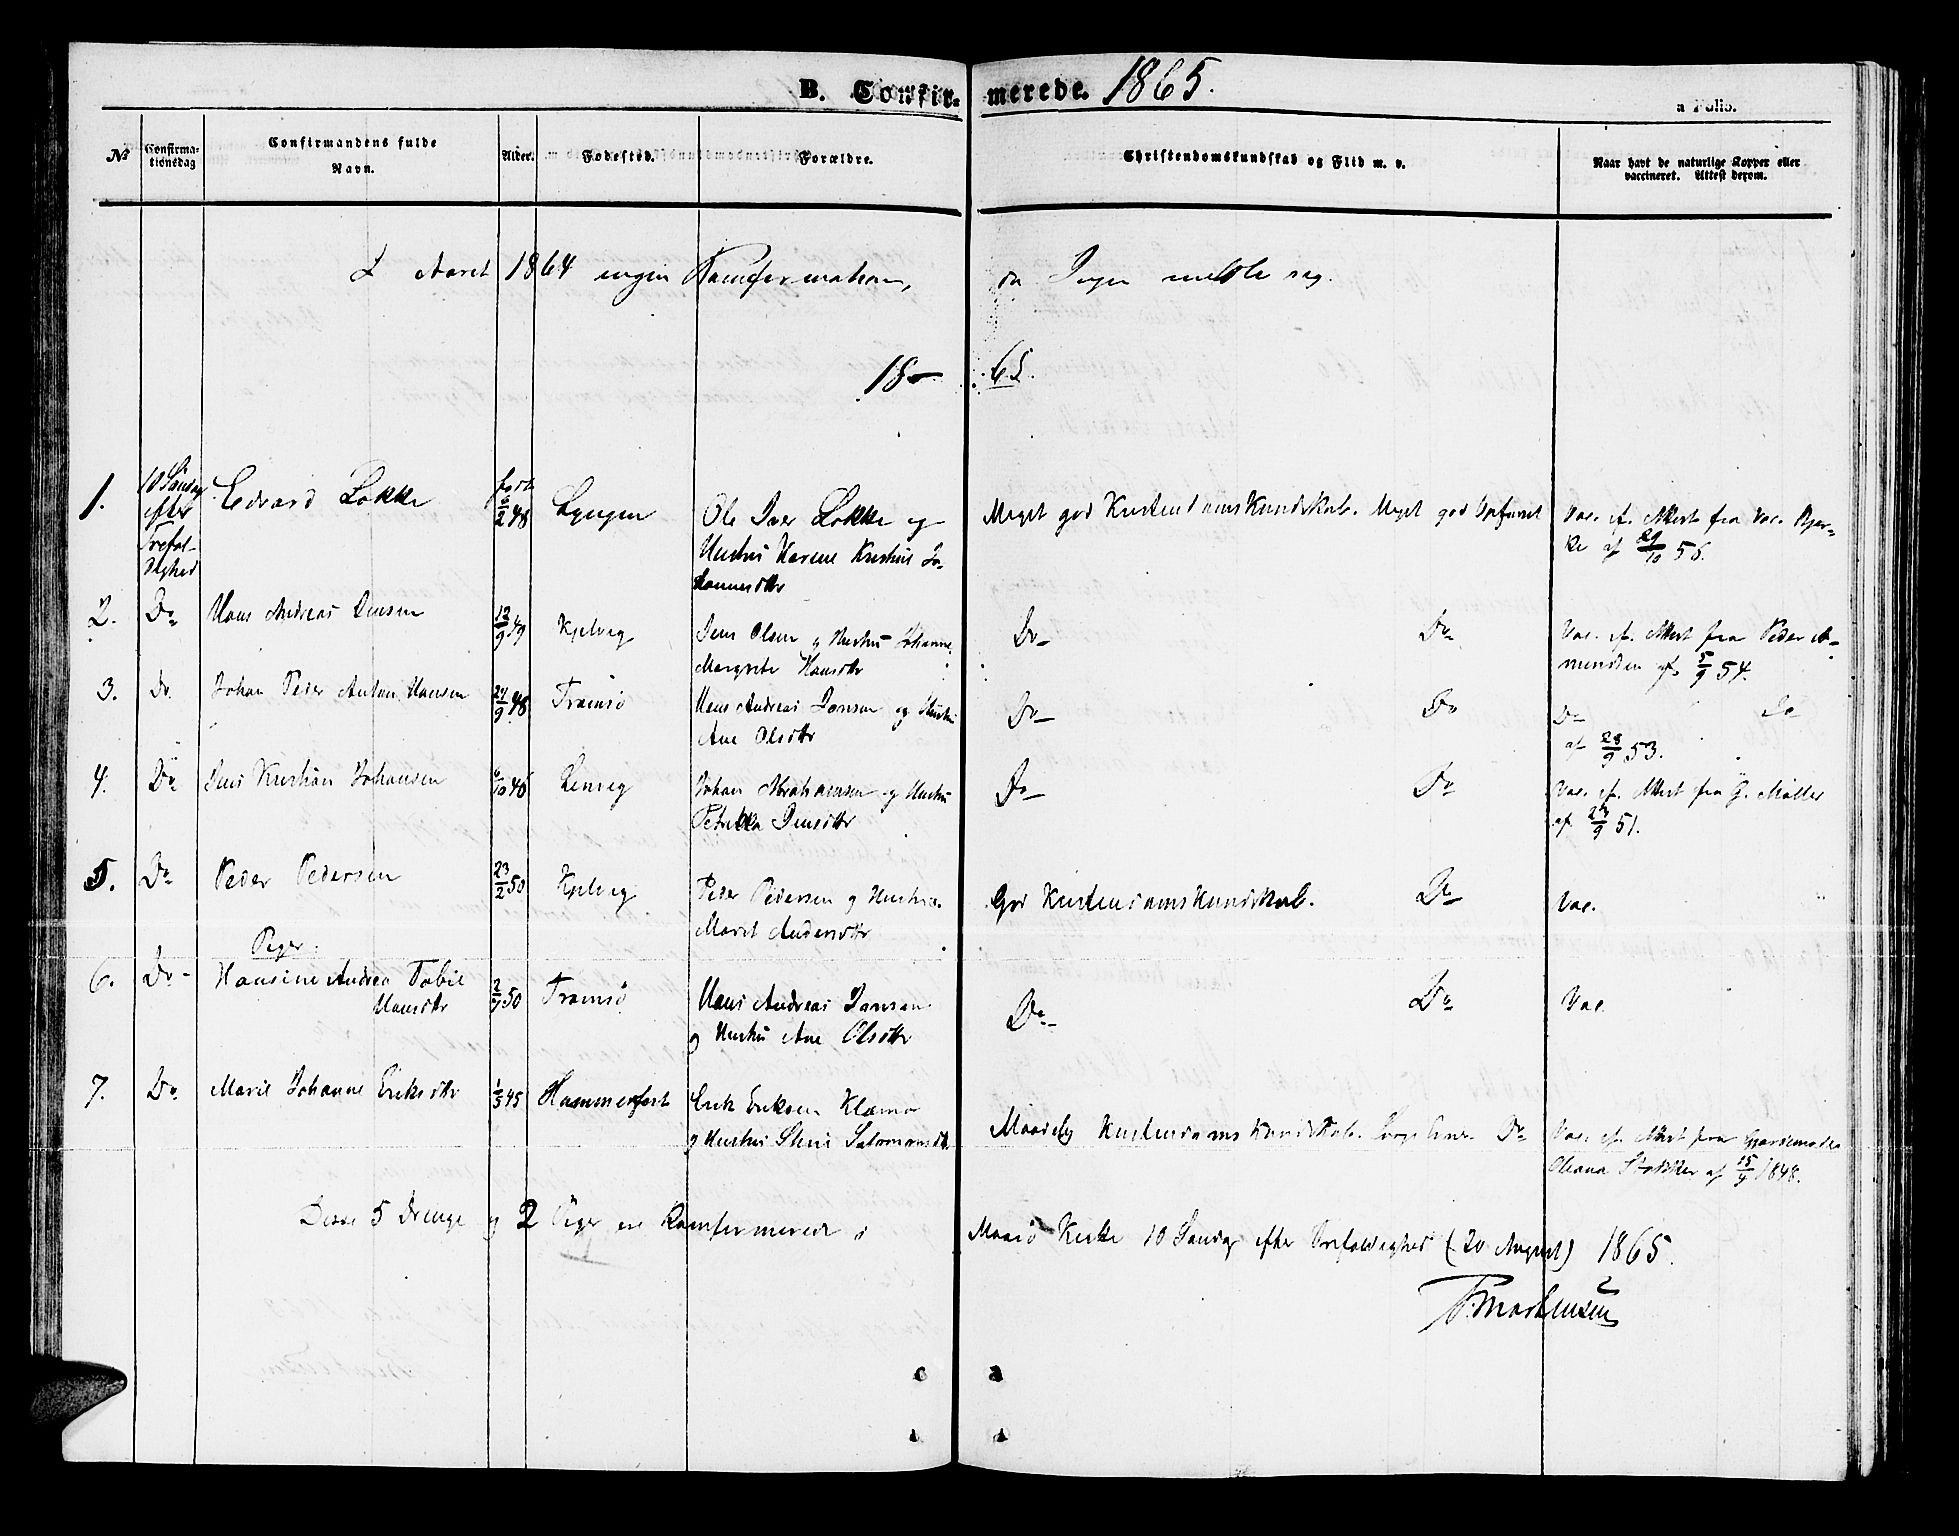 B. Confirmerede. 1865.
a Folio.
No Confirmationsdag Confirmandens fulde Navn. Alder. Fødested. Forældre. Christendomskundskab og Flid m. v. Naar havt de naturlige Kopper eller vaccineret. Attest derom.
I Aaret 1864 ingen Konfirmation, da Ingen meldte seg.
1865.
1. 10 Søndag Edvard Løkke født
efter 48 Lyngen Ole Iver Løkke og Meget god Kristendomskundskab. Meget god Opførsel Vac. ef. Attest fra Vac. Bjer-
Trefol- Hustru Karene Kristine Jo- ke af 29/10 56.
dighed hannesdtr
2. Do Hans Andreas Jensen 12/9 49 Kjelvig Jens Olsen og Hustru Johanne Do Do Vac. ef. Attest fra Peder A-
Margrete Hansdtr mundsen af 5/9 54.
3. Do Johan Peder Anton Hansen 9 48 Tromsø Hans Andreas Jansen og Hustru Do Do Do Do
Ane Olsdtr af 28/9 53.
4. Do Jens Kristian Johansen 10 Lenvig Johan Abrahamsen og Hustru Do Do Vac. ef. Attest fra G. Møller
Petrikka Jensdtr af 23/9 51.
5. Do Peder Pedersen 23/2 50 Kjelvig Peder Pedersen og Hustru God Kristendomskundskab. Do Vac.
Piger. Marit Andersdtr
6. Do Hansine Andrea Tobie 50 Tromsø Hans Andreas Jansen Do Do Vac.
Hansdtr og Hustru Ane Olsdtr
7. Do Marie Johanne Eriksdtr 1/5 45 Hammerfest Erik Eriksen Klæmo Maadelig Kristendoms Kundskab. Do Vac. ef. Attest fra Gjordemoder
og Hustru Stine Salomonsdtr Oliana Stokker af 15/9 1848.
Disse 5 Drenge og 2 Piger ere Konfirmerede i Maasø Kirke 10 Søndag efter Trefoldighed (20 August) 1865.
Mortensen